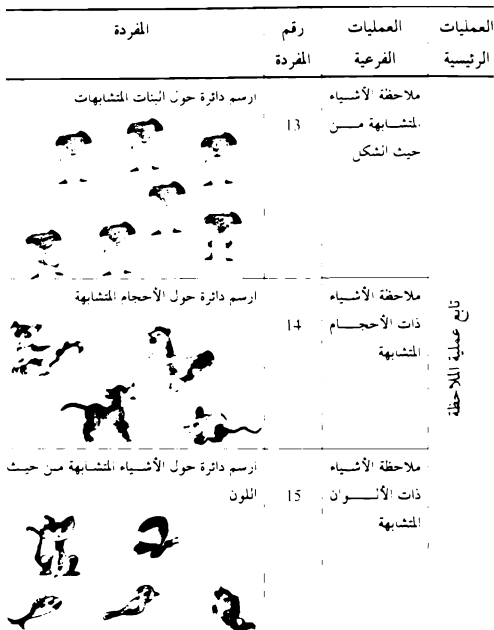 العمليات الرئيسية
العمليات الفرعية
رقم المفردة
المفردة
تابع عملية الملاحظة
ملاحظة الأشياء
المتشابهة من
حيث الشكل
13
ارسم دائرة حول البنات المتشابهات
ملاحظة الأشياء
ذات الأحجام
المتشابهة
14
ارسم دائرة حول الأحجام المتشابهة
ملاحظة الأشياء
ذات الألوان
المتشابهة
15
ارسم دائرة حول الأشياء المتشابهة من حيث
اللون